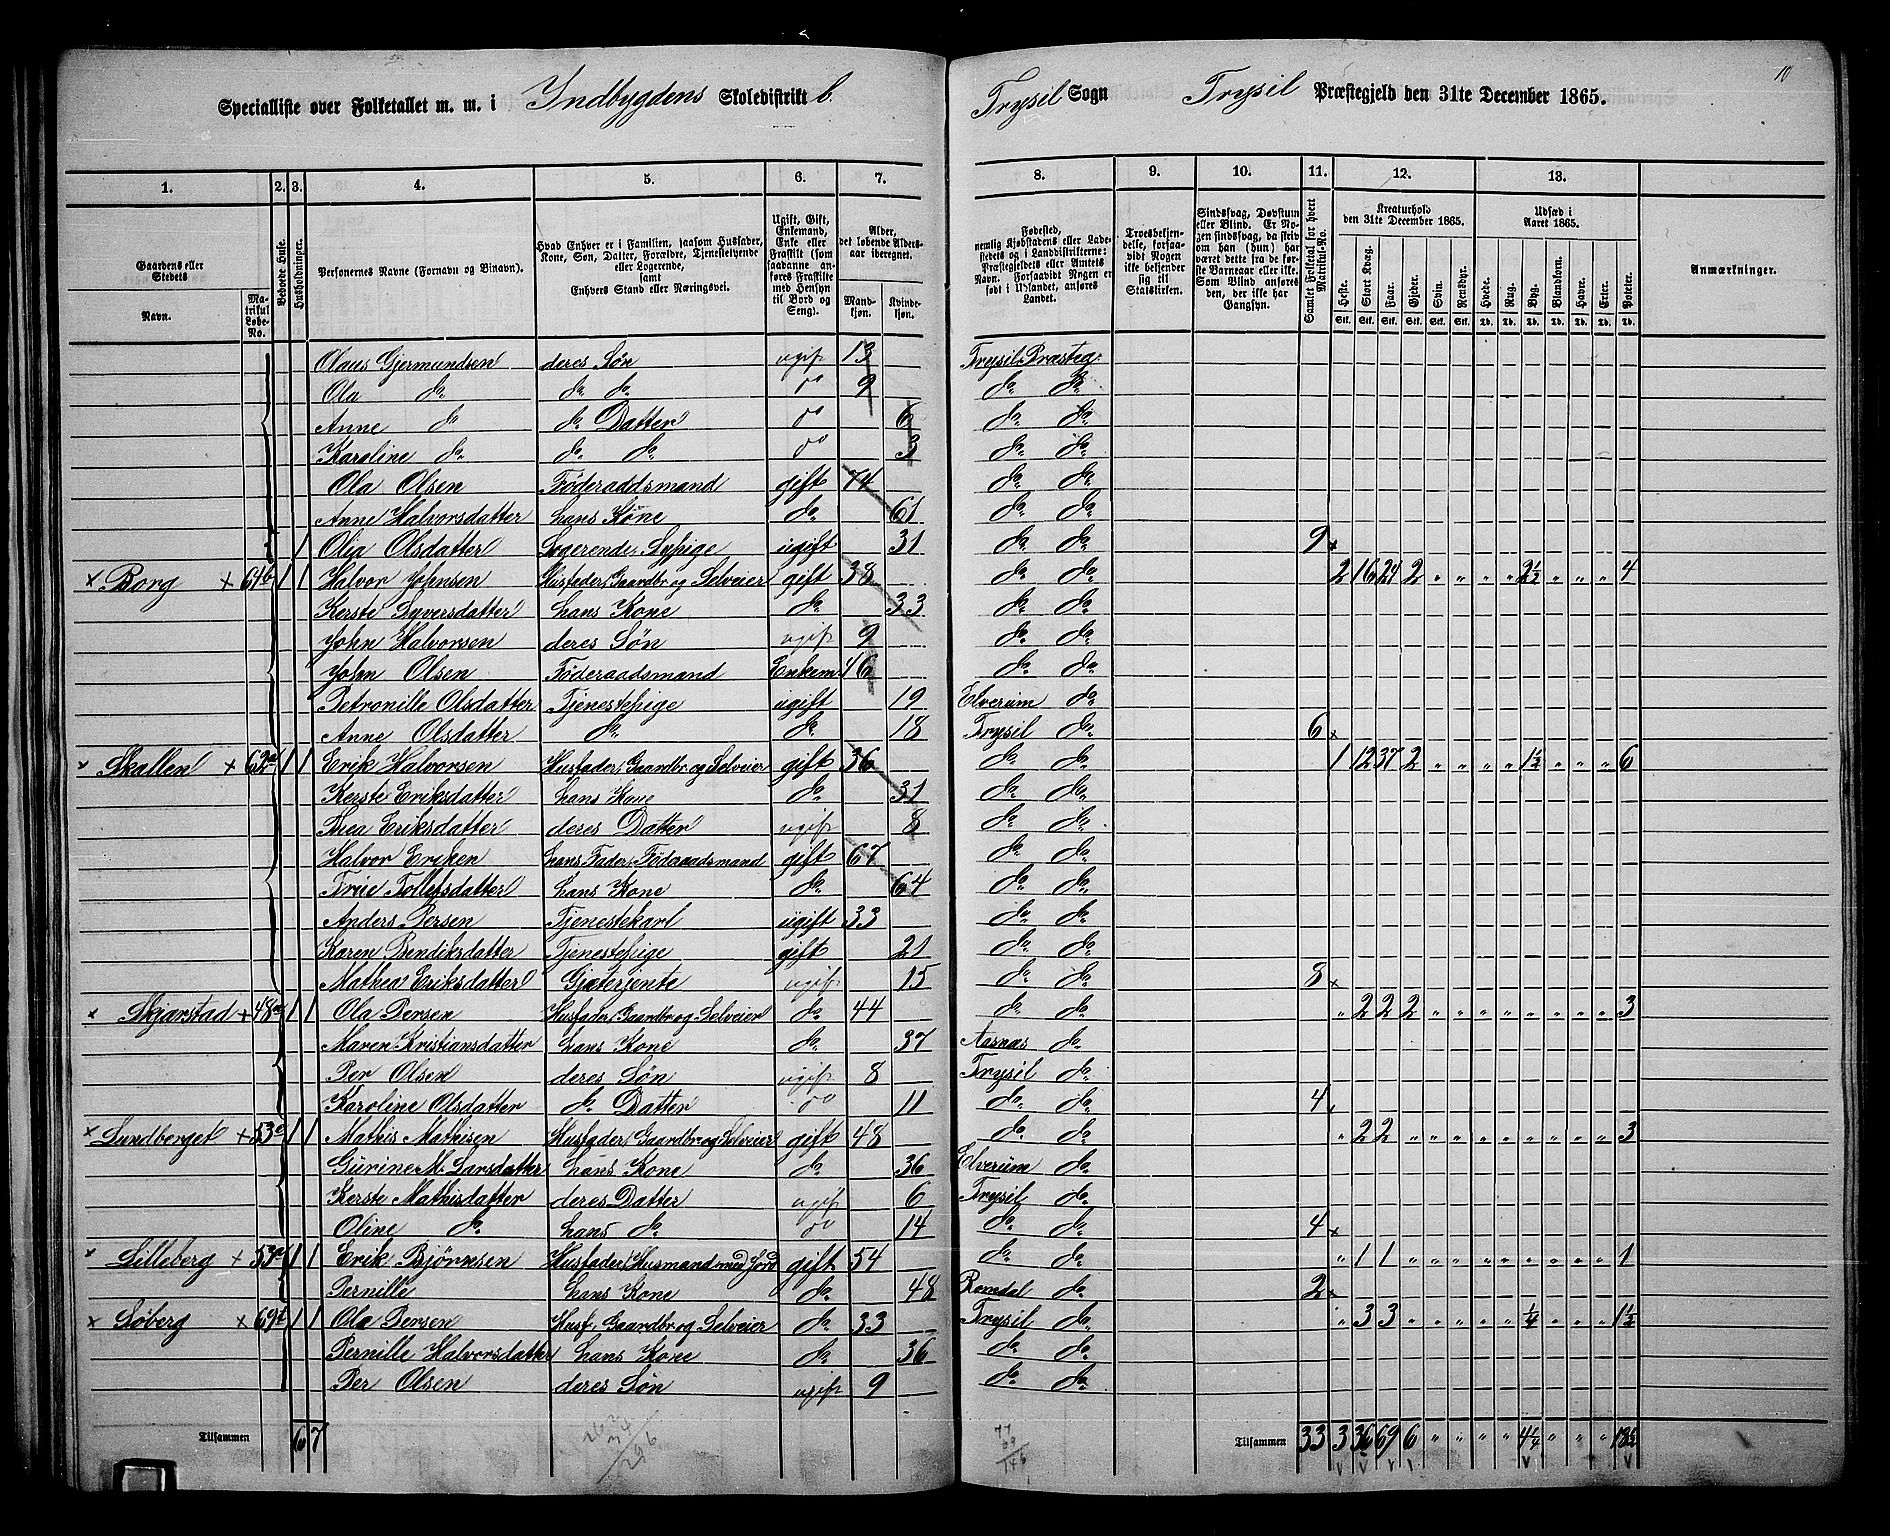 Specialliste over Folketallet m. m. i Indbygdens Skoledistrikt b. Trysil Sogn Trysil Præstegjeld den 31te December 1865.
10
1. 2. 3. 4. 5. 6. 7. 8. 9. 10. 11. 12. 13.
Gaardens eller Stedets Navn. Matrikul Løbe-No. Beboede Huse. Husholdninger. Personernes Navne (Fornavn og Binavn). Hvad Enhver er i Familien, saasom Husfader, Kone, Søn, Datter, Forældre, Tjenestetyende eller Logerende, samt Enhvers Stand eller Næringsvei. Ugift, Gift, Enkemand, Enke eller Fraskilt (som saadanne anføres Fraskilte med Hensyn til Bord og Seng). Alder, det løbende Aldersaar iberegnet. Mandkjøn. Kvindekjøn. Fødested, nemlig Kjøbstadens eller Ladestedets eller Landdistrikterne: Præstegjeldets eller Amtets Navn. Forsaavidt Nogen er født i Udlandet, anføres Landet. Troesbekjendelse, forsaavidt Nogen ikke bekjender sig til Statskirken. Sindssvag, Døvstum eller Blind. Er Nogen sindssvag, da skriv om han (hun) har været dette fra de første Barneaar eller ikke. Som Blind anføres den, der ikke har Gangsyn. Samlet Folketal for hvert Matrikul-No. Kreaturhold den 31te December 1865. Heste. Stort Kvæg. Faar. Gjeder. Svin. Rensdyr. Udsæd i Aaret 1865. Hvede. Rug. Byg. Blandkorn. Havre. Erter. Poteter. Anmærkninger.
Olaus Gjermundsen deres Søn ugift 13 Trysil Præsteg.
Ola do do do do 9 do do
Anne do do Datter do 6 do do
Karoline do do do do 3 do do
Ola Olsen Føderaadsmand gift 74 do do
Anne Halvorsdatter hans Kone do 61 do do
1 Olia Olsdatter Logerende, Sypige ugift 31 do do 9 x
x Borg x 61b 1 1 Halvor Johnsen Husfader, Gaardbr og Selveier gift 38 do do 2 16 24 2 " " " " 2½ " " " 4
Kerste Syversdatter hans Kone do 33 do do
John Halvorsen deres Søn ugift 9 do do
John Olsen Føderaadsmand Enkem 46 do do
Petronille Olsdatter Tjenestepige ugift 19 Elverum do
Anne Olsdatter do do 18 Trysil do 6 x
x Skallen x 62a 1 1 Erik Halvorsen Husfader, Gaardbr og Selveier gift 36 do do 1 12 37 2 " " " " 1½ " " " 6
Kerste Eriksdatter hans Kone do 31 do do
Thea Eriksdatter deres Datter ugift 8 do do
Halvor Eriken hans Fader, Føderaadsmand gift 67 do do
Trüe Tollefsdatter hans Kone do 64 do do
Anders Persen Tjenestekarl ugift 33 do do
Karen Bendiksdatter Tjenestepige gift 21 do do
Mathea Eriksdatter Gjæterjente ugift 15 do do 8 x
x Skjærstad x 48a 1 1 Ola Persen Husfader, Gaardbr og Selveier do 44 do do " 2 22 2 " " " " " " " " 3
Maren Kristiansdatter hans Kone do 37 Aasnæs do
Per Olsen deres Søn ugift 8 Trysil do
Karoline Olsdatter do Datter do 11 do do 4 x
x Lundberget x 53c 1 1 Mathis Mathisen Husfader, Gaardbr og Selveier gift 48 do do " 2 2 " " " " " " " " " 3
Gurine M. Larsdatter hans Kone do 36 Elverum do
Kerste Mathisdatter deres Datter ugift 6 Trysil do
Oline do hans do do 14 do do 4 x
x Lilleberg x 53a 1 1 Erik Bjørnsen Husfader, Husmand med Jord gift 54 do do " 1 1 " " " " " " " " " 1
Pernille hans Kone do 48 Romedal do 2 x
x Søberg x 69b 1 1 Ola Persen Husf, Gaardbr og Selveier do 33 Trysil do " 3 3 " " " " " ¼ " " " 1½
Pernille Halvorsdatter hans Kone do 36 do do
Per Olsen deres Søn ugift 9 do do
Tilsammen 6 7 Tilsammen 33 3 36 69 6 " " " " 4¼ " " " 18½
34
296
77
69
146